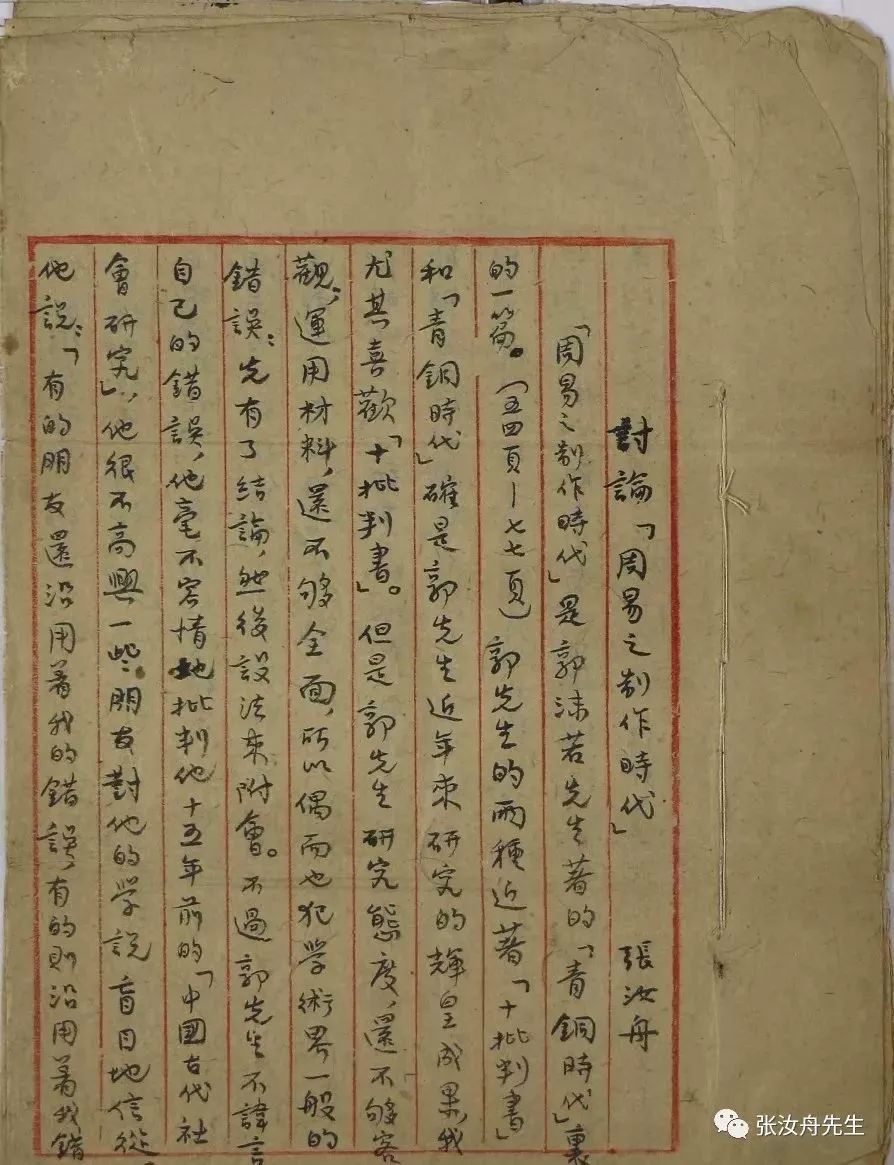 討論「周易之制作時代」 張汝舟
「周易之制作時代」是郭沫若先生著的「青銅時代」裏
的一篇。（五四頁—七七頁）郭先生的兩種近著「十批判書」
和「青銅時代」確是郭先生近年來研究的輝皇成果，我
尤其喜歡「十批判書」。但是郭先生研究態度，還不够客
觀，運用材料，還不够全面，所以偶而也犯学術界一般的
錯誤：先有了結論，然後設法來附會。不過郭先生不諱言
自己的錯誤，他毫不容情地批判他十五年前的「中國古代社
會研究」，他很不高興一些朋友對他的学説盲目地信從。
他説：「有的朋友還沿用着我的錯誤，有的則沿用着我錯
张汝舟先生